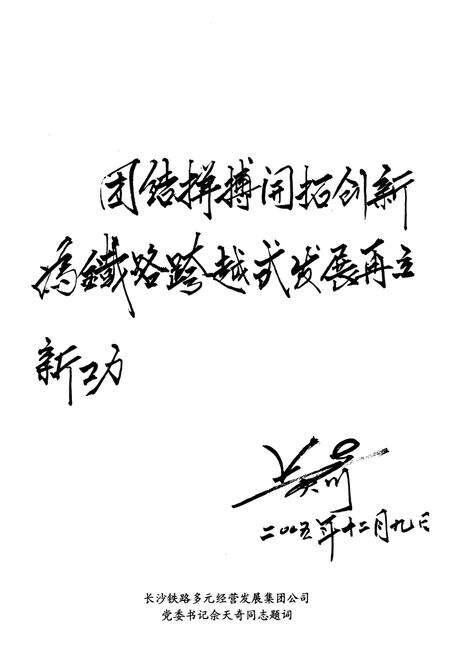 团结拼搏开拓创新
為鐵路跨越式发展再立
新功
二〇〇五年十二月九日
长沙铁路多元经营发展集团公司
党委书记余天奇同志题词